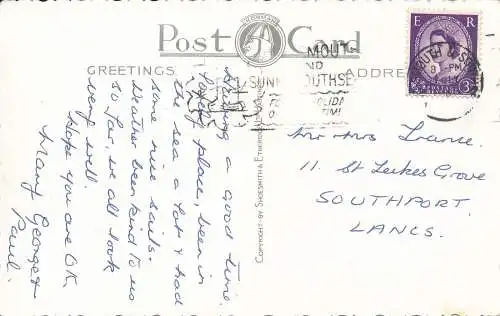 Post Card
GREETINGS
ADDRESS
E R
3D
SOUTHSEA
Having a good time.
Lovely place, been in
the sea a lot & had
some nice sails.
Weather been kind to us
so far, we all look
very well
Hope you are OK.
Mary George &
Paul.
COPYRIGHT BY SHOESMITH & ETHERIDGE
Mr Mrs
11 St Lukes Grove
SOUTHPORT
LANCS.